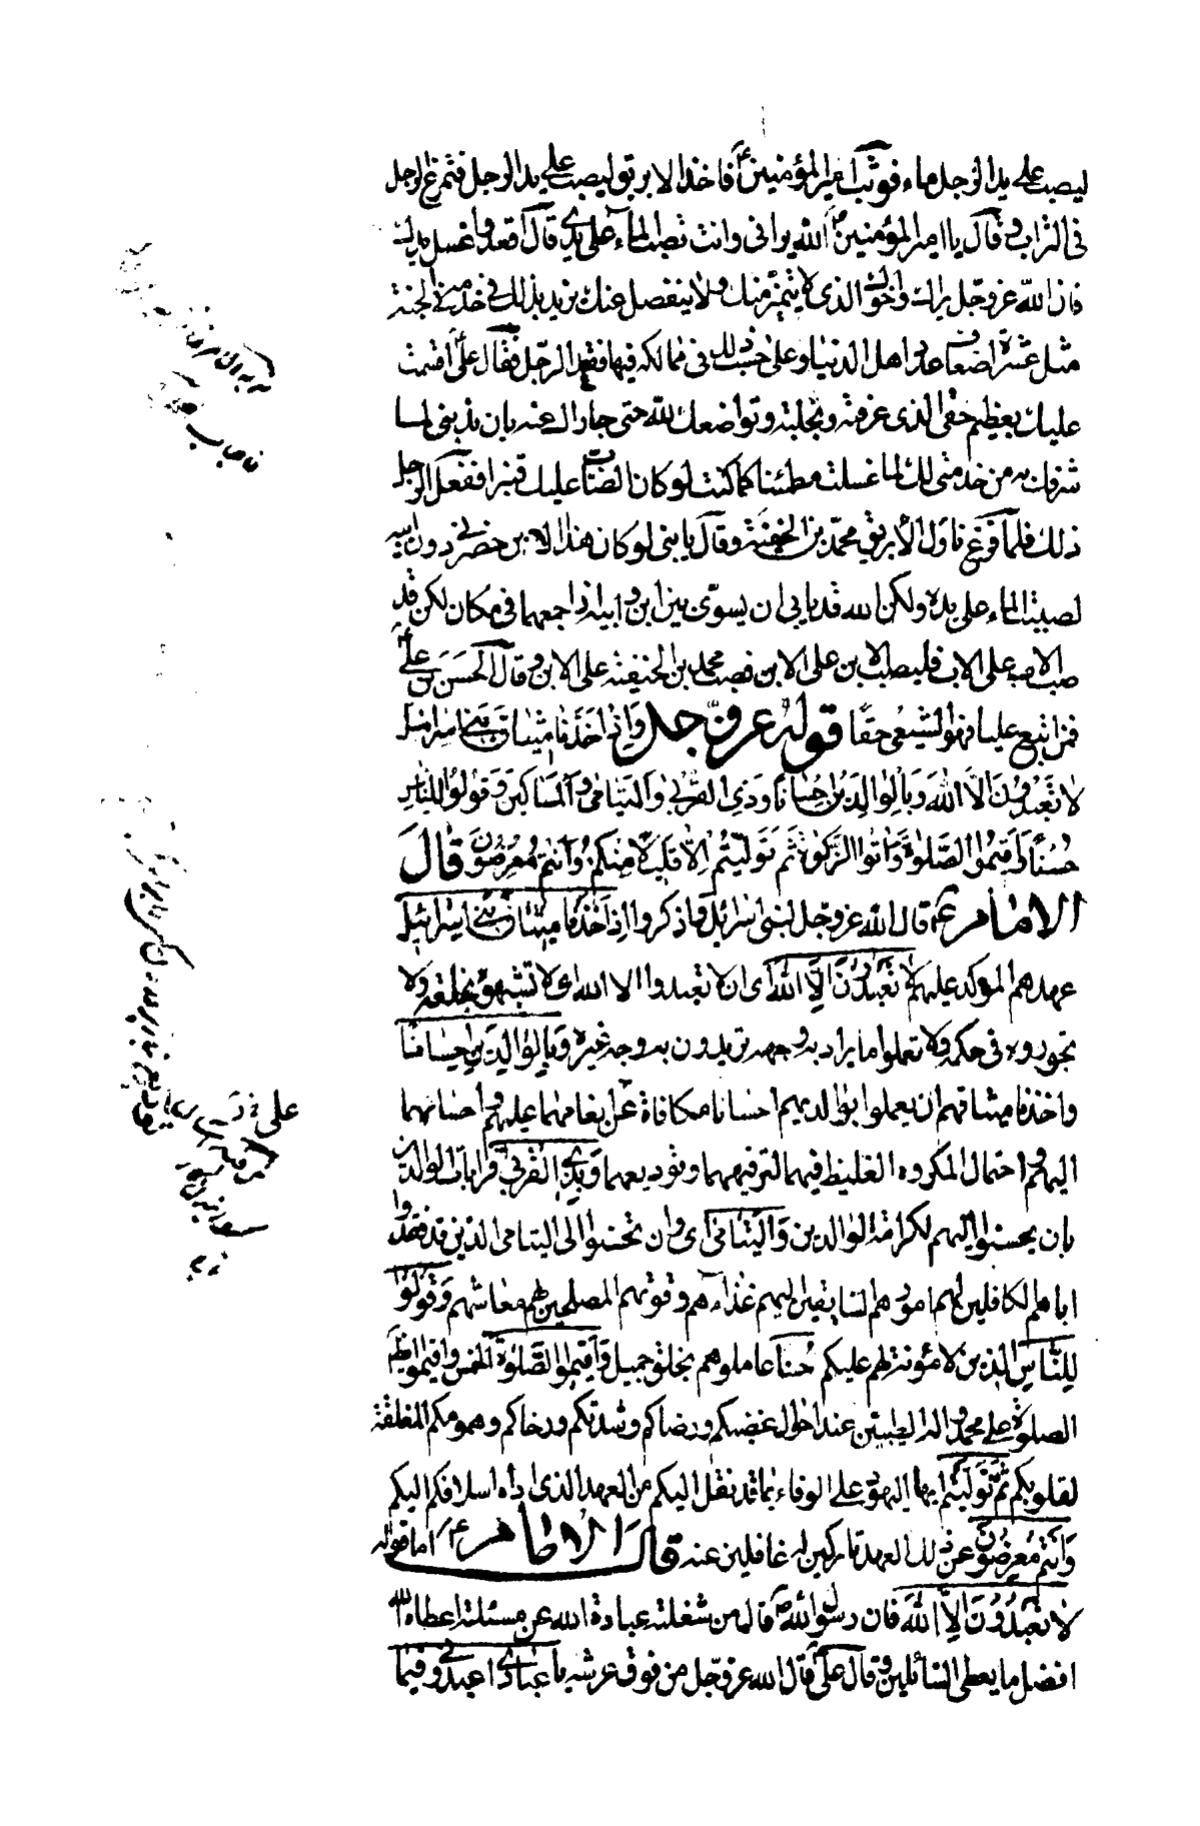 ليصب على يد الرجل ماء فوثب امير المؤمنين ع فاخذ الابريق ليصب على يد الرجل فتمرغ الرجل
فى التراب وقال يا امير المؤمنين الله يرانى وانت تصب الماء على يدى قال اقعد واغسل يدك
فان الله عز وجل يراك واخوك الذى لا يتميز منك ولا ينفصل عنك يزيد بذلك فى خدمه فى الجنة
مثل عشرة اضعاف عدد اهل الدنيا وعلى حسب ذلك فى ممالكه فيها فقعد الرجل فقال على ع اقسمت
عليك بعظيم حقى الذى عرفته وبجلته وتواضعك لله حتى جازاك عنه بان ندبنى لما
شرفك به من خدمتى لك لما غسلت مطمئنا كما كنت لو كان الصاب عليك قنبرا ففعل الرجل
ذلك فلما فرغ ناول الابريق محمد بن الحنفية وقال يا بنى لو كان هذا الابن حضرنى دون ابيه
لصببت الماء على يده ولكن الله قد يابى ان يسوى بين ابن وابيه اذا جمعهما فى مكان لكن قد
صب الاب على الاب فليصب الابن على الابن فصب محمد بن الحنفية على الابن وقال الحسن بن على ع
فمن اتبع عليا فهو الشيعى حقا قوله عز وجل وَاِذْ اَخَذْنَا مِيثَاقَ بَنِى اِسْرائيل
لا تَعْبُدُونَ اِلَّا اللهَ وَبِالْوالِدَيْنِ اِحْسَانًا وَذِى القُرْبى وَالْيَتَامى وَالْمَسَاكِينَ وَقُولُوا لِلنَّاسِ
حُسْنًا وَاَقِيمُوا الصَّلٰوةَ وَآتُوا الزَّكٰوةَ ثُمَّ تَوَلَّيْتُمْ اِلَّا قَلِيلًا مِنْكُمْ وَاَنْتُمْ مُعْرِضُونَ قال
الامام ع قال الله عز وجل لبنى اسرائيل واذكروا اِذْ اَخَذْنَا مِيثَاقَ بَنِى اسرائيل
عهدهم المؤكد عليهم لا تَعْبُدُونَ اِلَّا اللهَ اى ان لا تعبدوا الا الله اى لا تشبهوه بخلقه ولا
تجوروه فى حكمه ولا تعملوا ما يراد به وجهه تريدون به وجه غيره وَبِالْوالِدَيْنِ اِحْسَانًا
واخذنا ميثاقهم ان يعملوا بوالديهم احسانا مكافاة عن انعامهما عليهم واحسانهما
اليهم واحتمال المكروه الغليظ فيهما لترفيههما وتوديعهما وَذِى القُرْبى قرابات الوالدين
بان يحسنوا اليهم لكرامة الوالدين وَالْيَتَامى اى وان تحسنوا الى اليتامى الذين قد فقدوا
اباهم الكافلين لهم امورهم السايقين اليهم غذاءهم وقوتهم المصلحين لهم معاشهم وَقُولُوا
لِلنَّاسِ الذين لا مؤنة لهم عليكم حُسْنًا عاملوهم بخلق جميل وَاَقِيمُوا الصَّلٰوةَ الخمس واقيموا ايضا
الصلوة على محمد واله الطيبين عند احوال غضبكم ورضاكم وشدتكم ورخاكم وهمومكم المعلقة
لقلوبكم ثُمَّ تَوَلَّيْتُمْ ايها اليهود على الوفاء بما قد نقل اليكم من العهد الذى اداه اسلافكم اليكم
وَاَنْتُمْ مُعْرِضُونَ عن ذلك العهد تاركين له غافلين عنه قال الامام ع اما قوله
لا تَعْبُدُونَ اِلَّا اللهَ فان رسول الله ص قال من شغلته عبادة الله عن مسئلته اعطاه الله
افضل ما يعطى السائلين وقال على ع قال الله عز وجل من فوق عرشه يا عبادى اعبدونى فيما